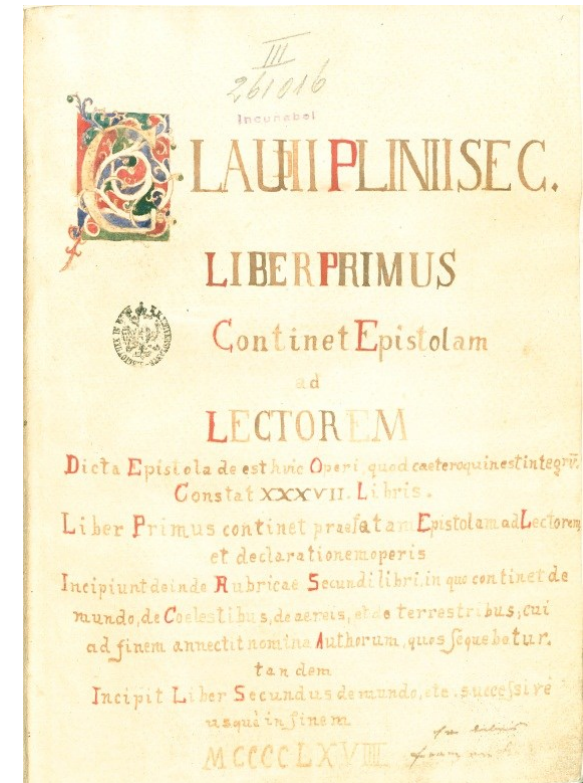 III
261016
Incunabel
CLAUDII PLINII SEC.
LIBER PRIMUS
Continet Epistolam
ad
LECTOREM
Dicta Epistola deest huic Operi, quod caeteroquin est integrũ.
Constat XXXVII. Libris.
Liber Primus continet praefatam Epistolam ad Lectorem
et declarationem operis
Incipiunt deinde Rubricae Secundi libri. in quo continet de
mundo, de Coelestibus, de aereis, et de terrestribus, cui
ad finem annectit nomina Authorum, quos sequebatur.
tandem
Incipit Liber Secundus de mundo, etc. successivè
usquè in finem
MCCCCLXVIIII